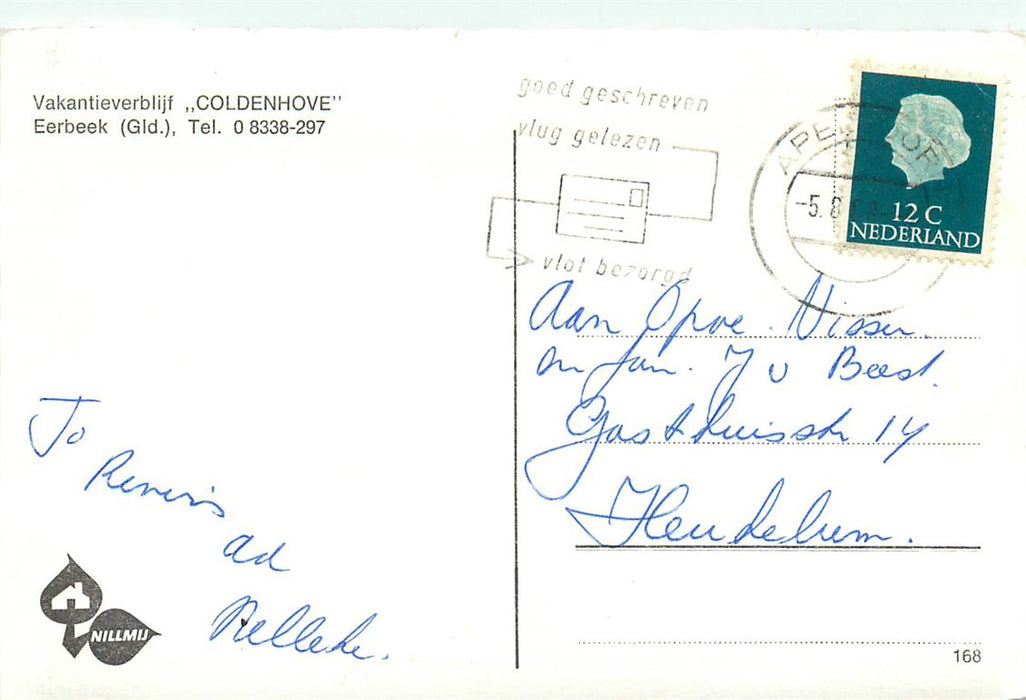 Vakantieverblijf „COLDENHOVE”
Eerbeek (Gld.), Tel. 0 8338-297
goed geschreven
vlug gelezen
vlot bezorgd
-5. 8
12 C
NEDERLAND
Aan Opoe. Visser.
en fam. J v Beest.
Gasthuisstr 14
Heukelum.
Jo
ad
Nelleke.
NILLMIJ
168